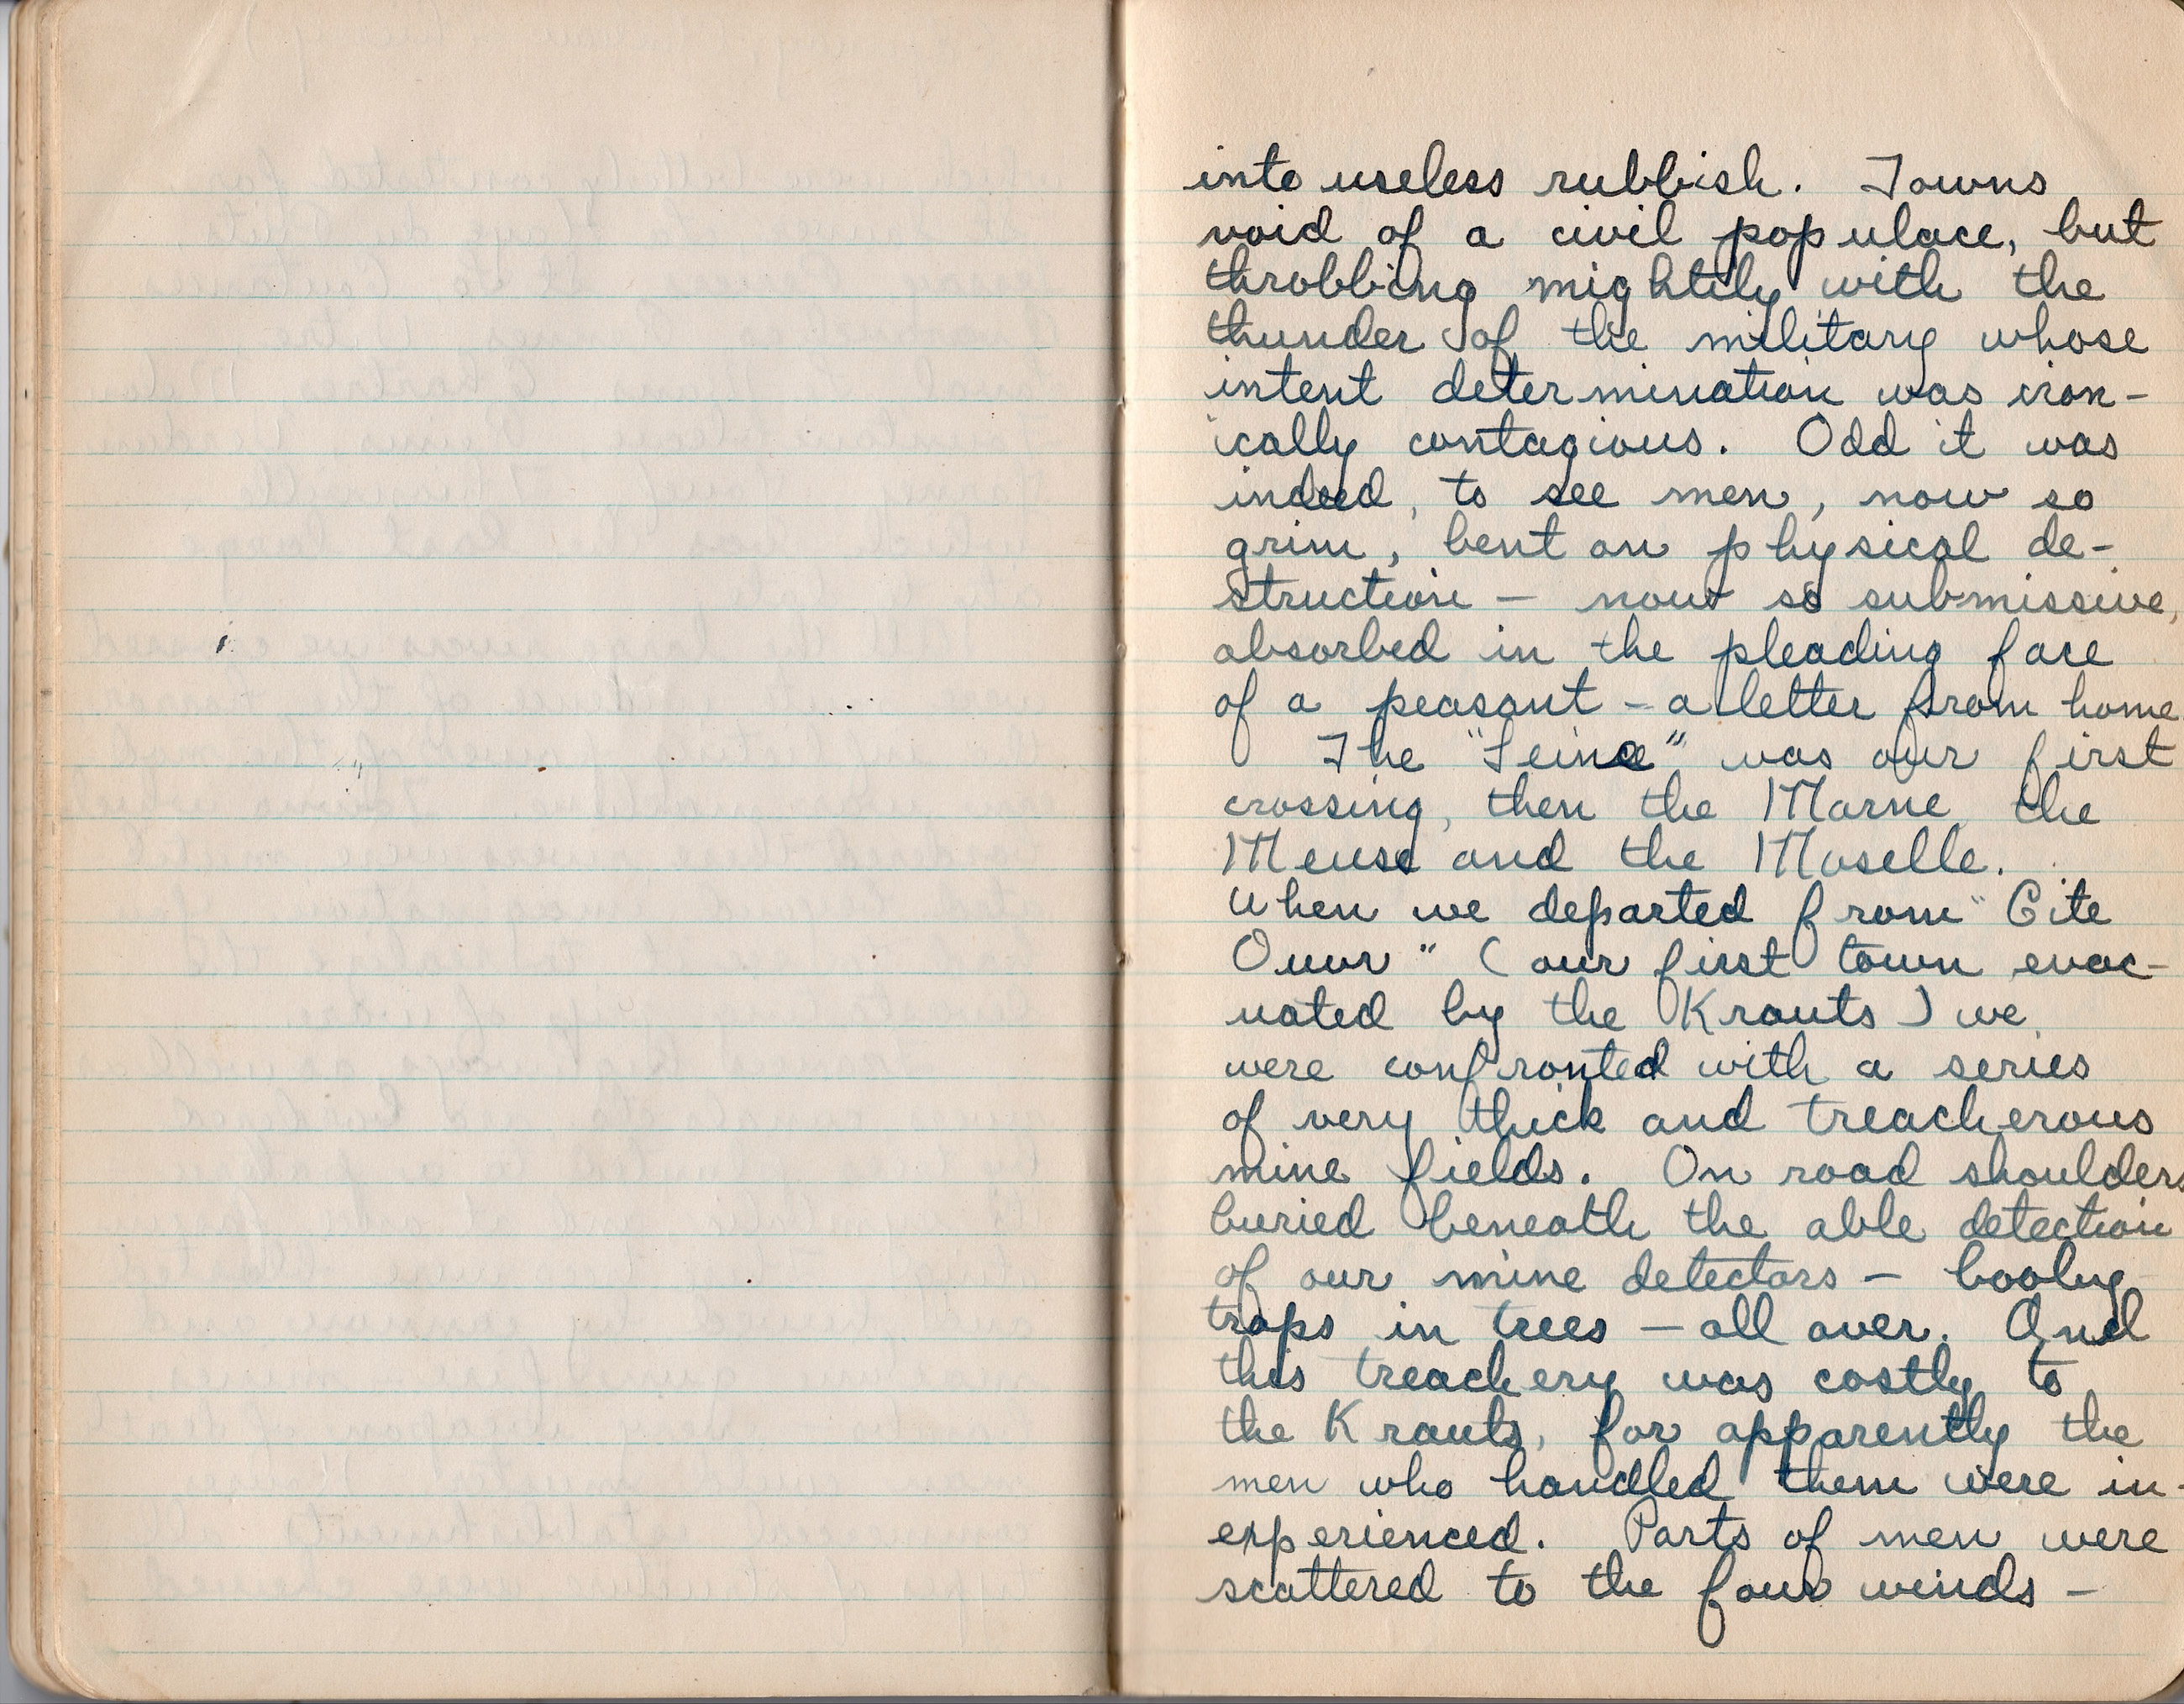 into useless rubbish. Towns
void of a civil populace, but
throbbing mightily with the
thunder of the military whose
intent determination was iron-
ically contagious. Odd it was
indeed, to see men, now so
grim, bent on physical de-
struction - now so submissive,
absorbed in the pleading face
of a peasant - a letter from home
The "Seine" was our first
crossing, then the Marne, the
Meuse and the Moselle.
When we departed from "Cite
Ouvr" (our first town evac-
uated by the Krauts) we
were confronted with a series
of very thick and treacherous
mine fields. On road shoulders
buried beneath the able detection
of our mine detectors - booby
traps in trees - all over. And
this treachery was costly to
the Krauts, for apparently the
men who handled them were in-
experienced. Parts of men were
scattered to the four winds -